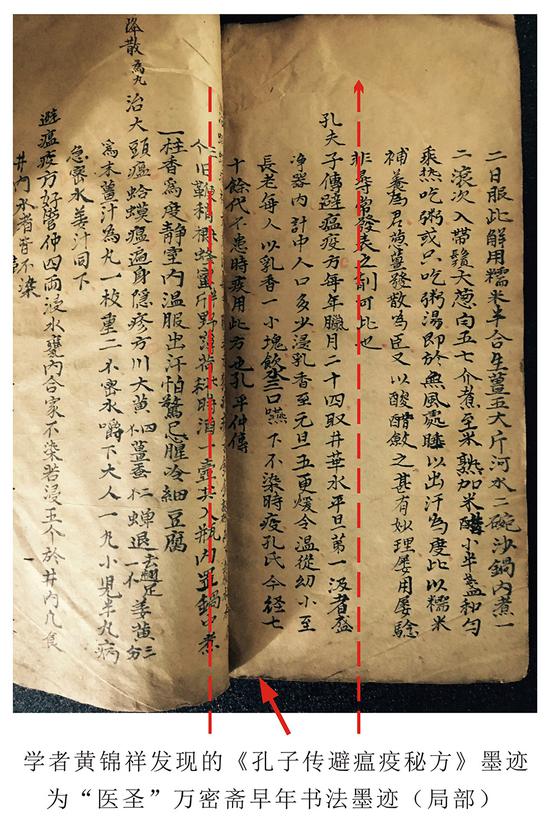 二日服此解用糯米半合生薑五大斤河水二碗沙鍋內煮一
二滾次入帶鬚大葱白五七介煮至米熟加米醋小半盞和勻
乘熱吃粥或只吃粥湯即於無風處睡以出汗為度此以糯米
補養為君葱薑發散為臣又以酸醋斂之甚有妙理屢用屢驗
非尋常發表之劑可比也
孔夫子傳避瘟疫方每年臘月二十四取井華水平旦第一汲者盛
淨器內計中人口多少浸乳香至元旦五更煖令溫從幼小至
長老每人以乳香一小塊飲水三口嚥下不染時疫孔氏今経七
十餘代不患時疫用此方也孔平仲傳
一柱香為度靜室內温服出汗怕驚忌腥冷細豆腐
治大頭瘟蛤蟆瘟遍身隱疹方川大黃四薑蚕二蟬退一不姜黃三分
為末薑汁為丸一枚重二不密水嚼下大人一丸小兒半丸病
急密水姜汁同下
避瘟疫方好管仲四兩浸水甕內合家不染若浸五个於井內凡食
井內水者皆不染
降散為丸
学者黄锦祥发现的《孔子传避瘟疫秘方》墨迹
为“医圣”万密斋早年书法墨迹（局部）